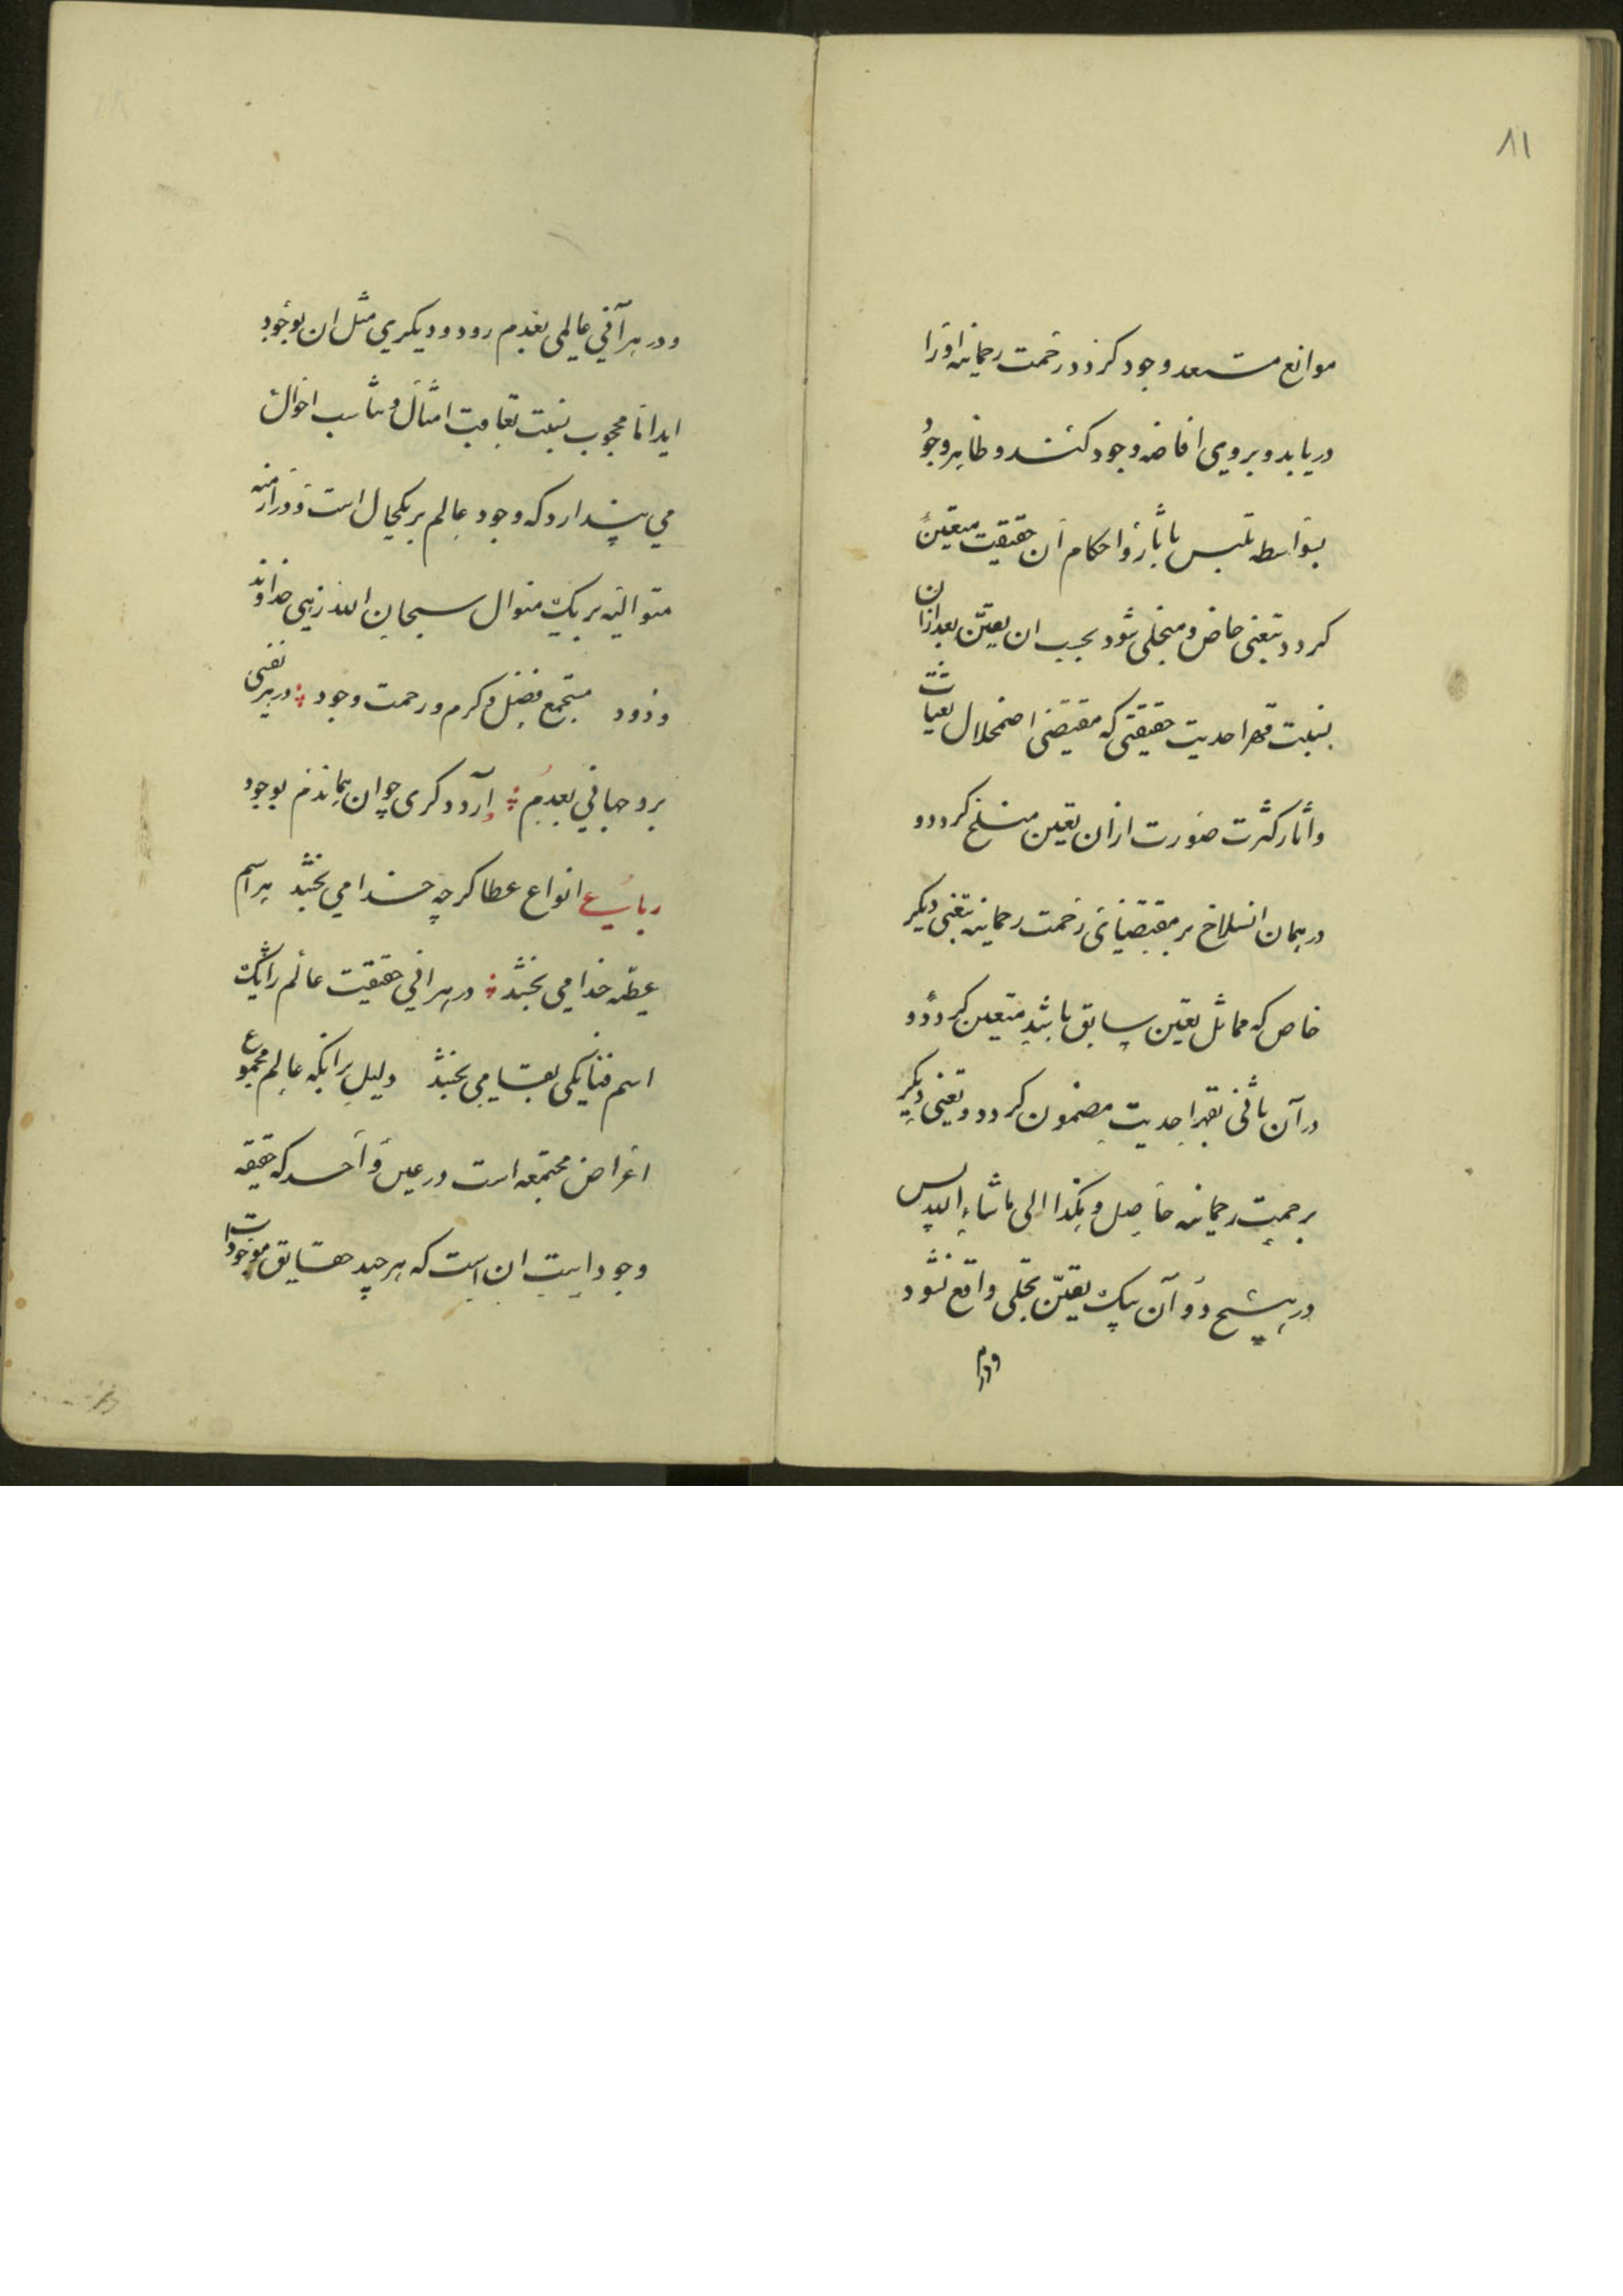 ۸۱
موانع مستعد وجود کردد رحمت رحمانیه اورا
دریابد و بروی افاضه وجود کند و ظاهر وجود
بواسطه تلبس باثار و احکام ان حقیقت متعین
کردد بتعینی خاص و متجلی شود بحسب ان تعین بعد ازان
بسبب قهر احدیت حقیقی که مقتضی اضمحلال تعینات
واثار کثرت صورت ازان تعین منسلخ کردد و
در همان انسلاخ بر مقتضای رحمت رحمانیه بتعینی دیکر
خاص که مماثل تعین سابق باشد متعین کردد و
در آن ثانی بقهر احدیت مضمون کردد و تعینی دیکر
برحمت رحمانیه حاصل و هکذا الی ماشاء الله پس
در هیچ دو آن بیک تعین تجلی واقع نشود
ودر
ودر هر آنی عالمی بعدم رود و دیکری مثل ان بوجود
اید اما محجوب بسبب تعاقب امثال و تناسب احوال
می پندارد که وجود عالم بر یکحال است و در ازمنه
متوالیه بر یک منوال سبحان الله زهی خداوند
ودود مستجمع فضل و کرم و رحمت وجود در هر نفسی
برد جهانی بعدم آرد دکری چو ان هماندم بوجود
رباعی انواع عطا کرچه خدا می بخشد هر اسم
عطیه خدا می بخشد در هر انی حقیقت عالم را یک
اسم فنا یکی بقا می بخشد دلیل بر انکه عالم مجموع
اعراض مجتمعه است در عین واحد که حقیقه
وجود است ان است که هر چند حقایق موجودات